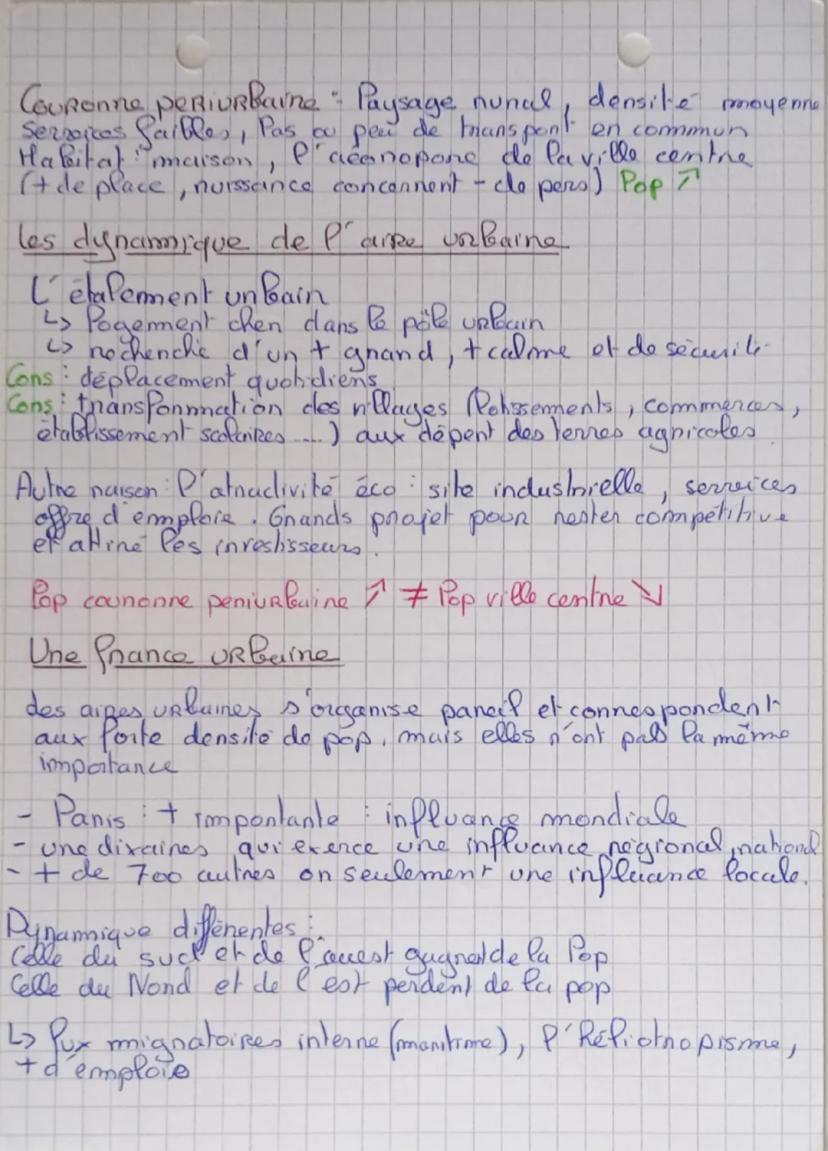 Couronne periurbaine : Paysage rural, densité moyenne
services faibles, Pas ou peu de transport en commun
Habitat : maison, l'aéroport de la ville centre
(+ de place, nuissance concernent - de pers) Pop ↗
les dynamique de l'aire urbaine
L'étalement urbain
↳ logement cher dans le pôle urbain
↳ recherche d'un + grand, + calme et de sécurité
Cons : déplacement quotidiens
Cons : transformation des villages (lotissements, commerces,
établissement scolaires ...) aux dépent des terres agricoles
Autre raison : l'atractivité éco : site industrielle, services
offre d'emploie. Grands projet pour rester compétitive
et attiré les investisseurs.
Pop couronne periurbaine ↗ ≠ Pop ville centre ↘
Une france urbaine
des aires urbaines s'organise pareil et correspondent
aux forte densité de pop, mais elles n'ont pas la même
importance
- Paris : + importante : influance mondiale
- une dixaines qui exerce une influance régional, national
- + de 700 autres on seulement une influance locale.
Dynamique différentes :
Celle du sud et de l'ouest gagnent de la Pop
Celle du Nord et de l'est perdent de la pop
↳ flux mignatoires interne (maritime), l'Réliotropisme,
+ d'emploie